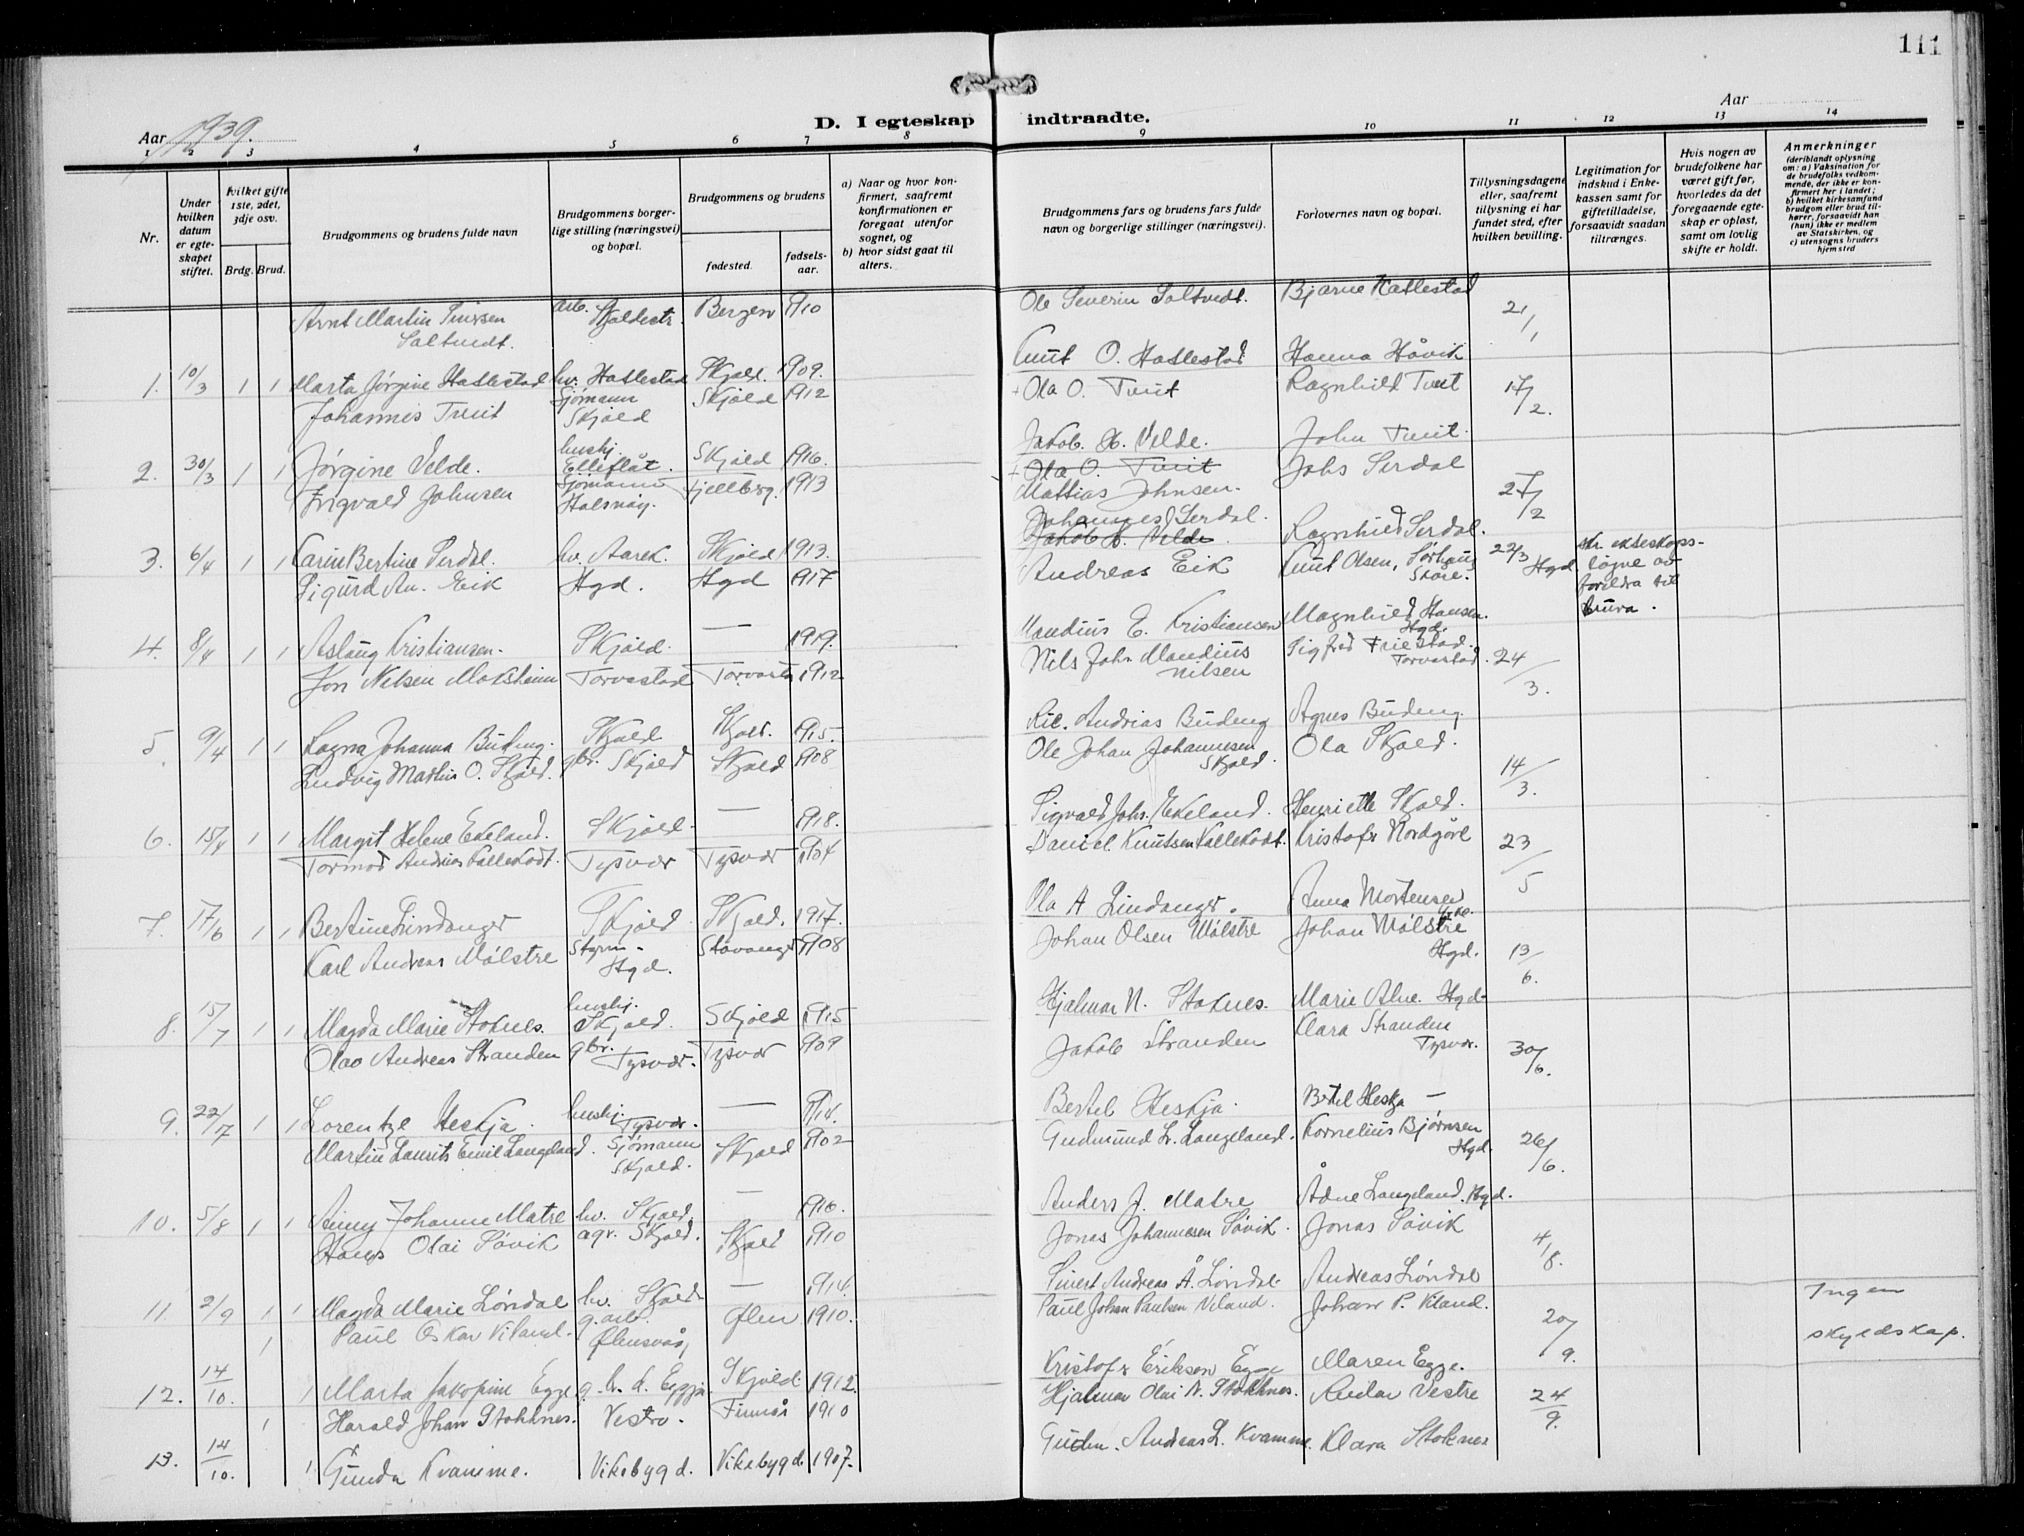 111
Aar 1939.
D. I egteskap indtraadte.
Aar
1 2 3 4 5 6 7 8 9 10 11 12 13 14
Nr.
Under hvilken datum er egteskapet stiftet.
hvilket gifte 1ste, 2det, 3dje osv.
Brdg. Brud.
Brudgommens og brudens fulde navn
Brudgommens borgerlige stilling (næringsvei) og bopæl.
Brudgommens og brudens
fødested. fødselsaar.
a) Naar og hvor konfirmert, saafremt konfirmationen er foregaat utenfor sognet, og
b) hvor sidst gaat til alters.
Brudgommens fars og brudens fars fulde navn og borgerlige stillinger (næringsvei).
Forlovernes navn og bopæl.
Tillysningsdagene eller, saafremt tillysning ei har fundet sted, efter hvilken bevilling.
Legitimation for indskud i Enkekassen samt for giftetilladelse, forsaavidt saadan tiltrænges.
Hvis nogen av brudefolkene har været gift før, hvorledes da det foregaaende egteskap er opløst, samt om lovlig skifte er holdt.
Anmerkninger (deriblandt oplysning om: a) Vaksination for de brudefolks vedkommende, der ikke er konfirmert her i landet; b) hvilket kirkesamfund brudgom eller brud tilhører, forsaavidt han (hun) ikke er medlem av Statskirken, og c) utensogns bruders hjemsted
Arnt Martin Sivertsen Saltvedt. arb. Skjoldestr. Bergen 1910 Ole Severin Saltvedt. Bjarne Hatlestad 21/1
1. 10/3 1 1 Marta Jørgine Hatlestad hv. Hatlestad Skjold. 1909. Knut O. Hatlestad Hanna Håvik
Johannes Tveit Sjømann Skjold Skjold 1912 + Ola O. Tveit Ragnhild Tveit 17/2.
2. 30/3 1 1 Jørgine Velde. hushj. Elleflåt. Skjold 1916. Jakob H. Velde. John Tveit.
Ingvald Johnsen Sjømann Halsnøy. Fjellberg. 1913 + Ola O. Tveit Mattias Johnsen. Johs Serdal 27/2
3. 6/4 1 1 Karin Bertine Serdal. hv. Aarek. Skjold 1913. Johannes Serdal. Jakob H. Velde Ragnhild Serdal.
Sigurd An. Eik Hgd. Hgd 1917 Andreas Eik Knut Olsen, Sørhaug Skåre. 22/3 Hgd
skr. ekteskapsløyve av foreldra til brura.
4. 8/4 1 1 Aslaug Kristiansen. Skjold. — 1919. Mandius E. Kristiansen Magnhild Hansen. Hgd.
Jon Nilsen Moksheim Torvastad Torvastad 1912 Nils John Mandius Nilsen Sigfred Friestad. Torvastad. 24/3.
5. 9/4 1 1 Ragna Johanna Budeng. Skjold Skjold. 1915. Ric. Andrias Budeng Agnes Budeng
Ludvig Martin O. Skjold. gbr. Skjold Skjold 1908 Ole Johan Johannesen Skjold. Ola Skjold. 14/3.
6. 15/4 1 1 Margit Helene Ekeland. Skjold. — 1918. Sigvald Johs. Ekeland. Henriette Skjold.
Tormod Andrias Kallekodt. Tysvær Tysvær 1904 Daniel Knutsen Kallekodt. Kristofer Nordgåre 23/5
7. 17/6 1 1 Bertine Lindanger Skjold Skjold. 1917. Ola A Lindanger. Anna Mortensen
Karl Andreas Mølstre Styrm. Hgd. Stavanger 1908 Johan Olsen Mølstre Johan Mølstre Hgd. 13/6
8. 15/7 1 1 Magda Marie Stoknes. hushj. Skjold. Skjold 1915 Hjalmar N. Stoknes. Marie Alne. Hgd.
Olav Andreas Stranden gbr. Tysvær. Tysvær 1909 Jakob Stranden Klara Stranden Tysvær. 30/6.
9. 22/7 1 1 Lorentze Heskja. hushj. Tysvær. — 1914. Bertel Heskja. Bertel Heskja —
Martin Laurits Emil Langeland. Sjømann Skjold. Skjold 1902 Gudmund L. Langeland. Kornelius Bjørnsen Hgd. 26/6.
10. 5/8 1 1 Anny Johanne Matre hv. Skjold. — 1910. Anders J. Matre Ådne Langeland. Hgd.
Hans Olai Søvik agr. Skjold. Skjold 1910 Jonas Johannesen Søvik. Jonas Søvik 4/8.
11. 2/9 1 1 Magda Marie Løndal hv. Skjold — 1914. Sivert Andreas Å. Løndal. Andreas Løndal
1 Paul Oskar Viland. g.arb. Ølensvåg, Ølen 1910. Paul Johan Paulsen Viland. Johan P. Kland. 20/9. Ingen skyldskap.
12. 14/10. 1 Marta Jakopine Egge g. h. d. Eggja Skjold. 1912. Kristofer Eriksen Egge Maren Egge.
1 Harald Johan Stokknes. Vestre. Finnås 1910 Hjalmar Olai N. Stokknes. Reidar Vestre 24/9.
13. 14/10. 1 Gunda Kvamme. Vikebygd. Vikebygd 1907. Gudm. Andreas L. Kvamme. Klara Stoknes